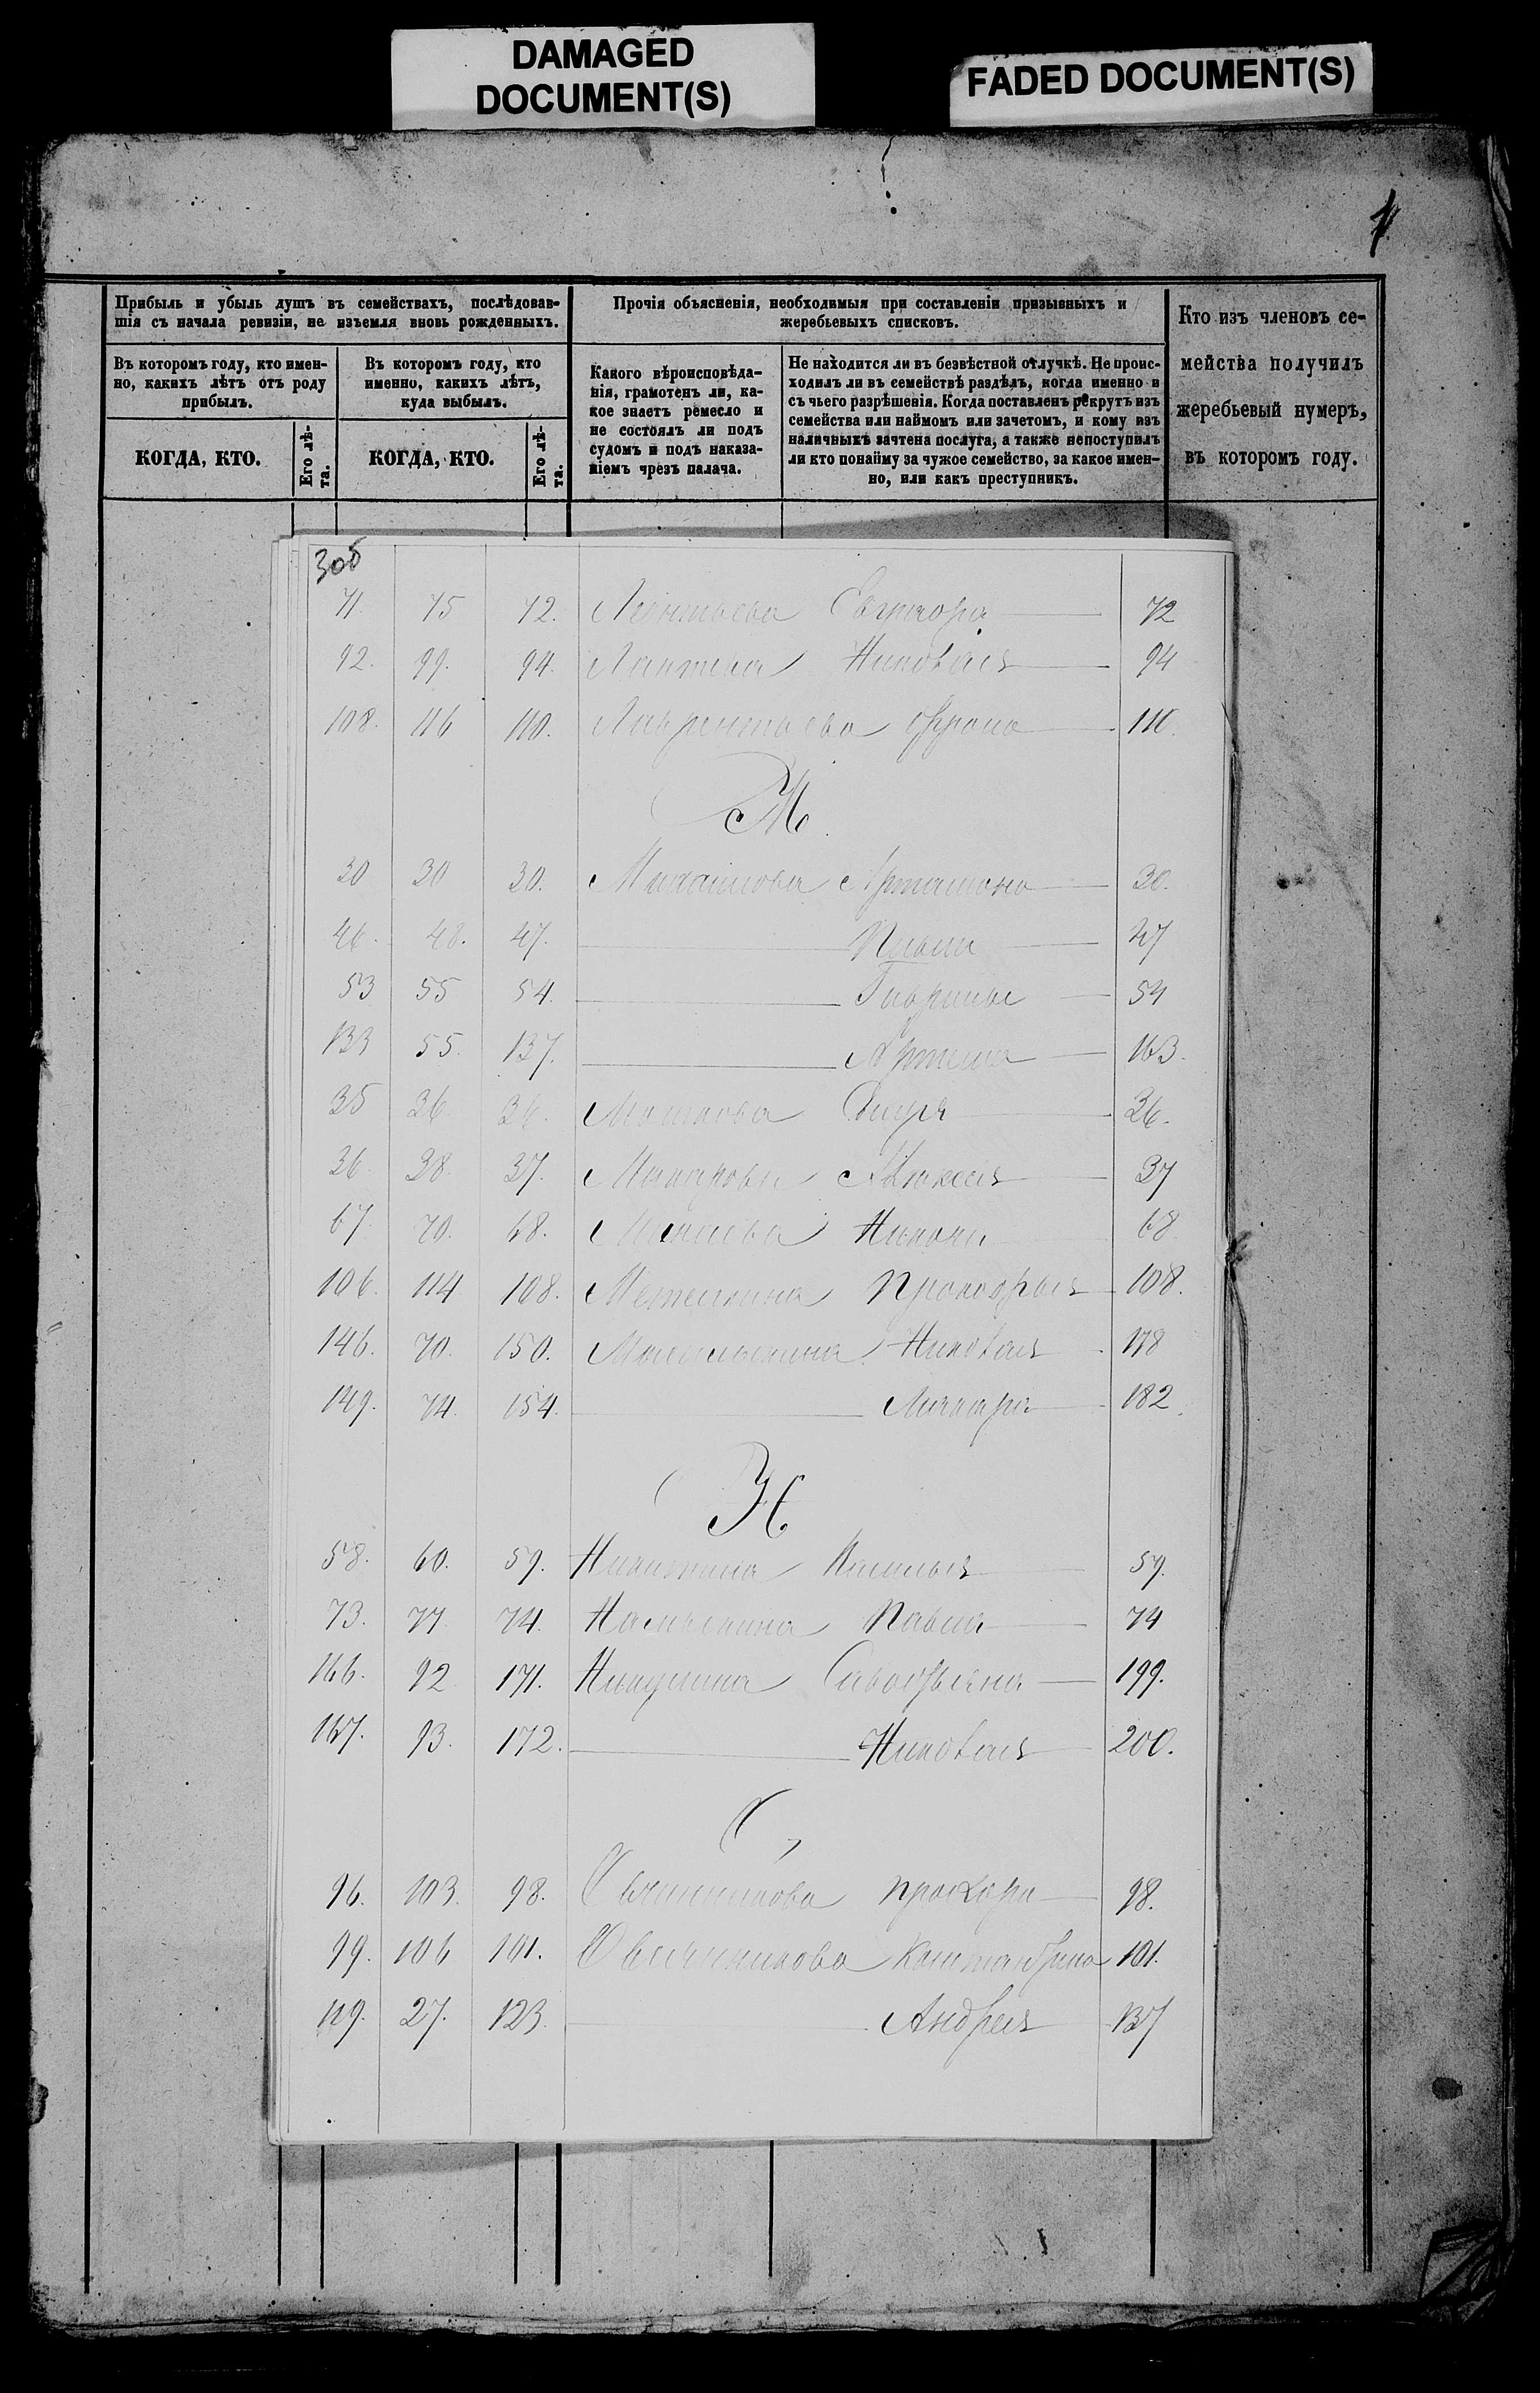 DAMAGED
DOCUMENT(S)
FADED DOCUMENT(S)
Прибыль и убыль душъ въ семействахъ, послѣдовав-
шія съ начала ревизіи, не изъемля вновь рожденныхъ.
Въ которомъ году, кто имен-
но, какихъ лѣтъ отъ роду
прибылъ.
КОГДА, КТО.
Его лѣ-
та.
Въ которомъ году, кто
именно, какихъ лѣтъ,
куда выбылъ.
КОГДА, КТО.
Его лѣ-
та.
Прочія объясненія, необходимыя при составленіи призывныхъ и
жеребьевыхъ списковъ.
Какого вѣроисповѣда-
нія, грамотенъ ли, ка-
кое знаетъ ремесло и
не состоялъ ли подъ
судомъ и подъ наказа-
ніемъ чрезъ палача.
Не находится ли въ безвѣстной отлучкѣ. Не проис-
ходилъ ли въ семействѣ раздѣлъ, когда именно и
съ чьего разрѣшенія. Когда поставленъ рекрутъ изъ
семейства или наймомъ или зачетомъ, и кому изъ
наличныхъ зачтена послуга, а также непоступилъ
ли кто понайму за чужое семейство, за какое имен-
но, или какъ преступникъ.
Кто изъ членовъ се-
мейства получилъ
жеребьевый нумеръ,
въ которомъ году.
3об
71. 75 72. Леонтьева 72
92. 99. 94. Лаптева Николая 94
108. 116 110. Лаврентьева Фрола 110.
М.
30 30. Михайлова Артамона 30.
46. 48. 47. Павла 47
53 55 54. Гаврилы 54
133 55. 137. Артема 163.
35 36 36. 36.
36 38. 37. Макарова Алексея 37
67. 70. 68. Никона 68
106. 114 108. Прокофья 108.
146. 70. 150. Николая 178
149. 74. 154. 182.
Н.
58. 60. 59. Никитина Василья 59.
73. 77 74. Павла 74
166. 92 171. Никулина 199.
167. 93. 172. Николая 200.
О,
96. 103. 98. Овчинникова Прохора 98.
99. 106 101. Овсянникова 101.
119. 27. 123. Андрея 137